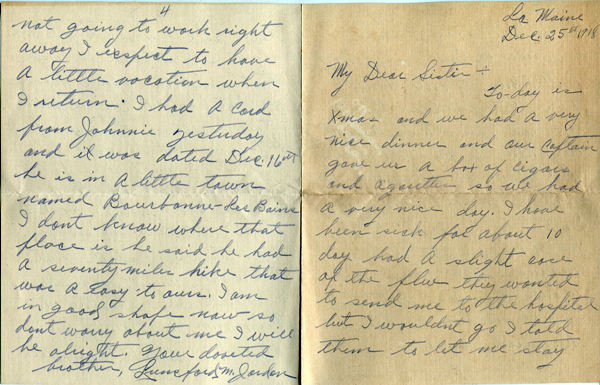 4
not going to work right
away I expect to have
a little vocation when
I return. I had a card
from Johnnie yestuday
and it was dated Dec. 16th
he is in a little town
named Bourbonne-les Bains
I dont know where that
place is he said he had
a seventy miler hike that
was a easy to ours. I am
in good shape now so
dont worry about me I will
be alright. Your devoted
brother, Lunsford M. Jordan
La Maine
Dec. 25th 1918
My Dear Sister÷
To-day is
X-mas and we had a very
nice dinner and our Captain
gave us a box of cigars
and so we had
a very nice day. I have
been sick for about 10
day had a slight case
of the flue they wanted
to send me to the hospital
but I wouldnt go I told
them to let me stay